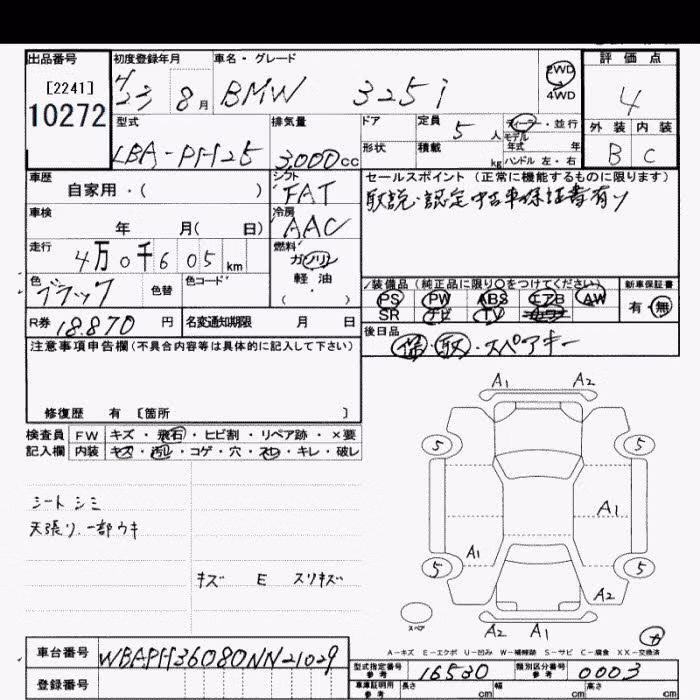 出品番号 初度登録年月 車名・グレード 評価点
[2241] 23 8月 BMW 325i 2WD 4
10272 4WD
型式 排気量 ドア 定員 5人 ディーラー・並行 外装 内装
LBA-PH25 3,000cc 形状 積載 kg モデル年式 年 B C
ハンドル 左・右
車歴 シフト セールスポイント (正常に機能するものに限ります)
自家用・( ) FAT 取説・認定中古車保証書有り
車検 冷房
年 月( 日) AAC
走行 燃料
4万0千605km ガソリン
色 色替 色コード 軽油 装備品(純正品に限り○をつけてください) 新車保証書
ブラック ( ・ ) PS PW ABS エアB AW 有・無
SR ナビ TV
R券 18.870円 名変通知期限 月 日 後日品
注意事項申告欄(不具合内容等は具体的に記入して下さい) 保・取・スペアキー
修復歴 有 [箇所 ]
検査員 FW キズ・飛石・ヒビ割・リペア跡・×要
記入欄 内装 キズ・汚レ・コゲ・穴・スレ・キレ・破レ
A1 A2
5 5
シート シミ
天張り.一部ウキ
A1
A1
キズ E スリキズ
5 5
A2
スペア
A2 A1
A-キズ E-エクボ U-凹み W-補修跡 S-サビ C-腐食 XX-交換済
車台番号 WBAPH36080NN21029
型式指定番号 参考 16530 類別区分番号 参考 0003
登録番号 車庫証明用 参考 長さ cm 幅 cm 高さ cm